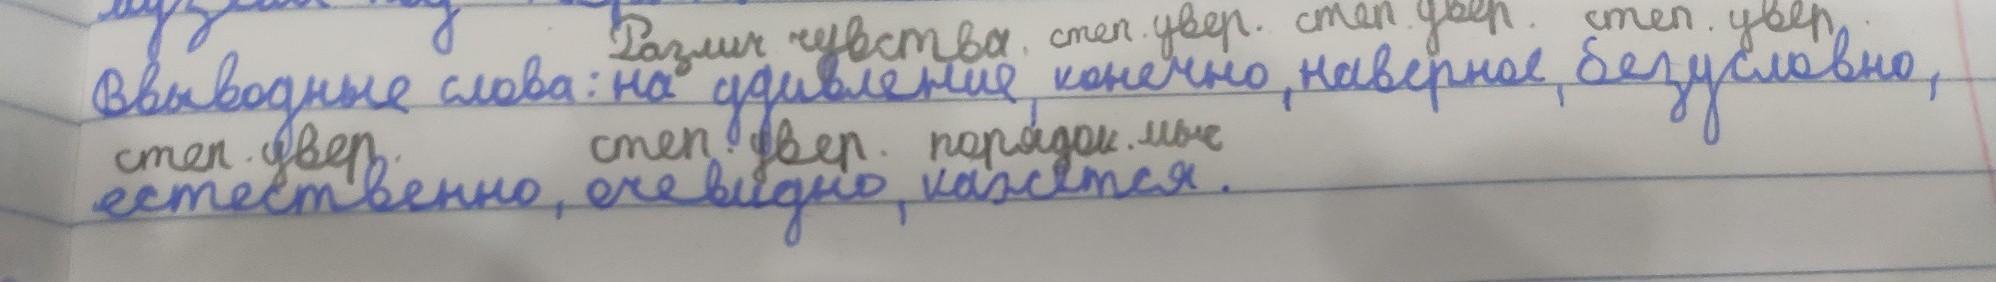 Различ чувства. степ. увер. степ. увер. степ. увер.
Ввыводные слова: на удивление, конечно, наверное, безусловно,
степ. увер. степ. увер. порядок. мыс
естественно, очевидно, кажется.